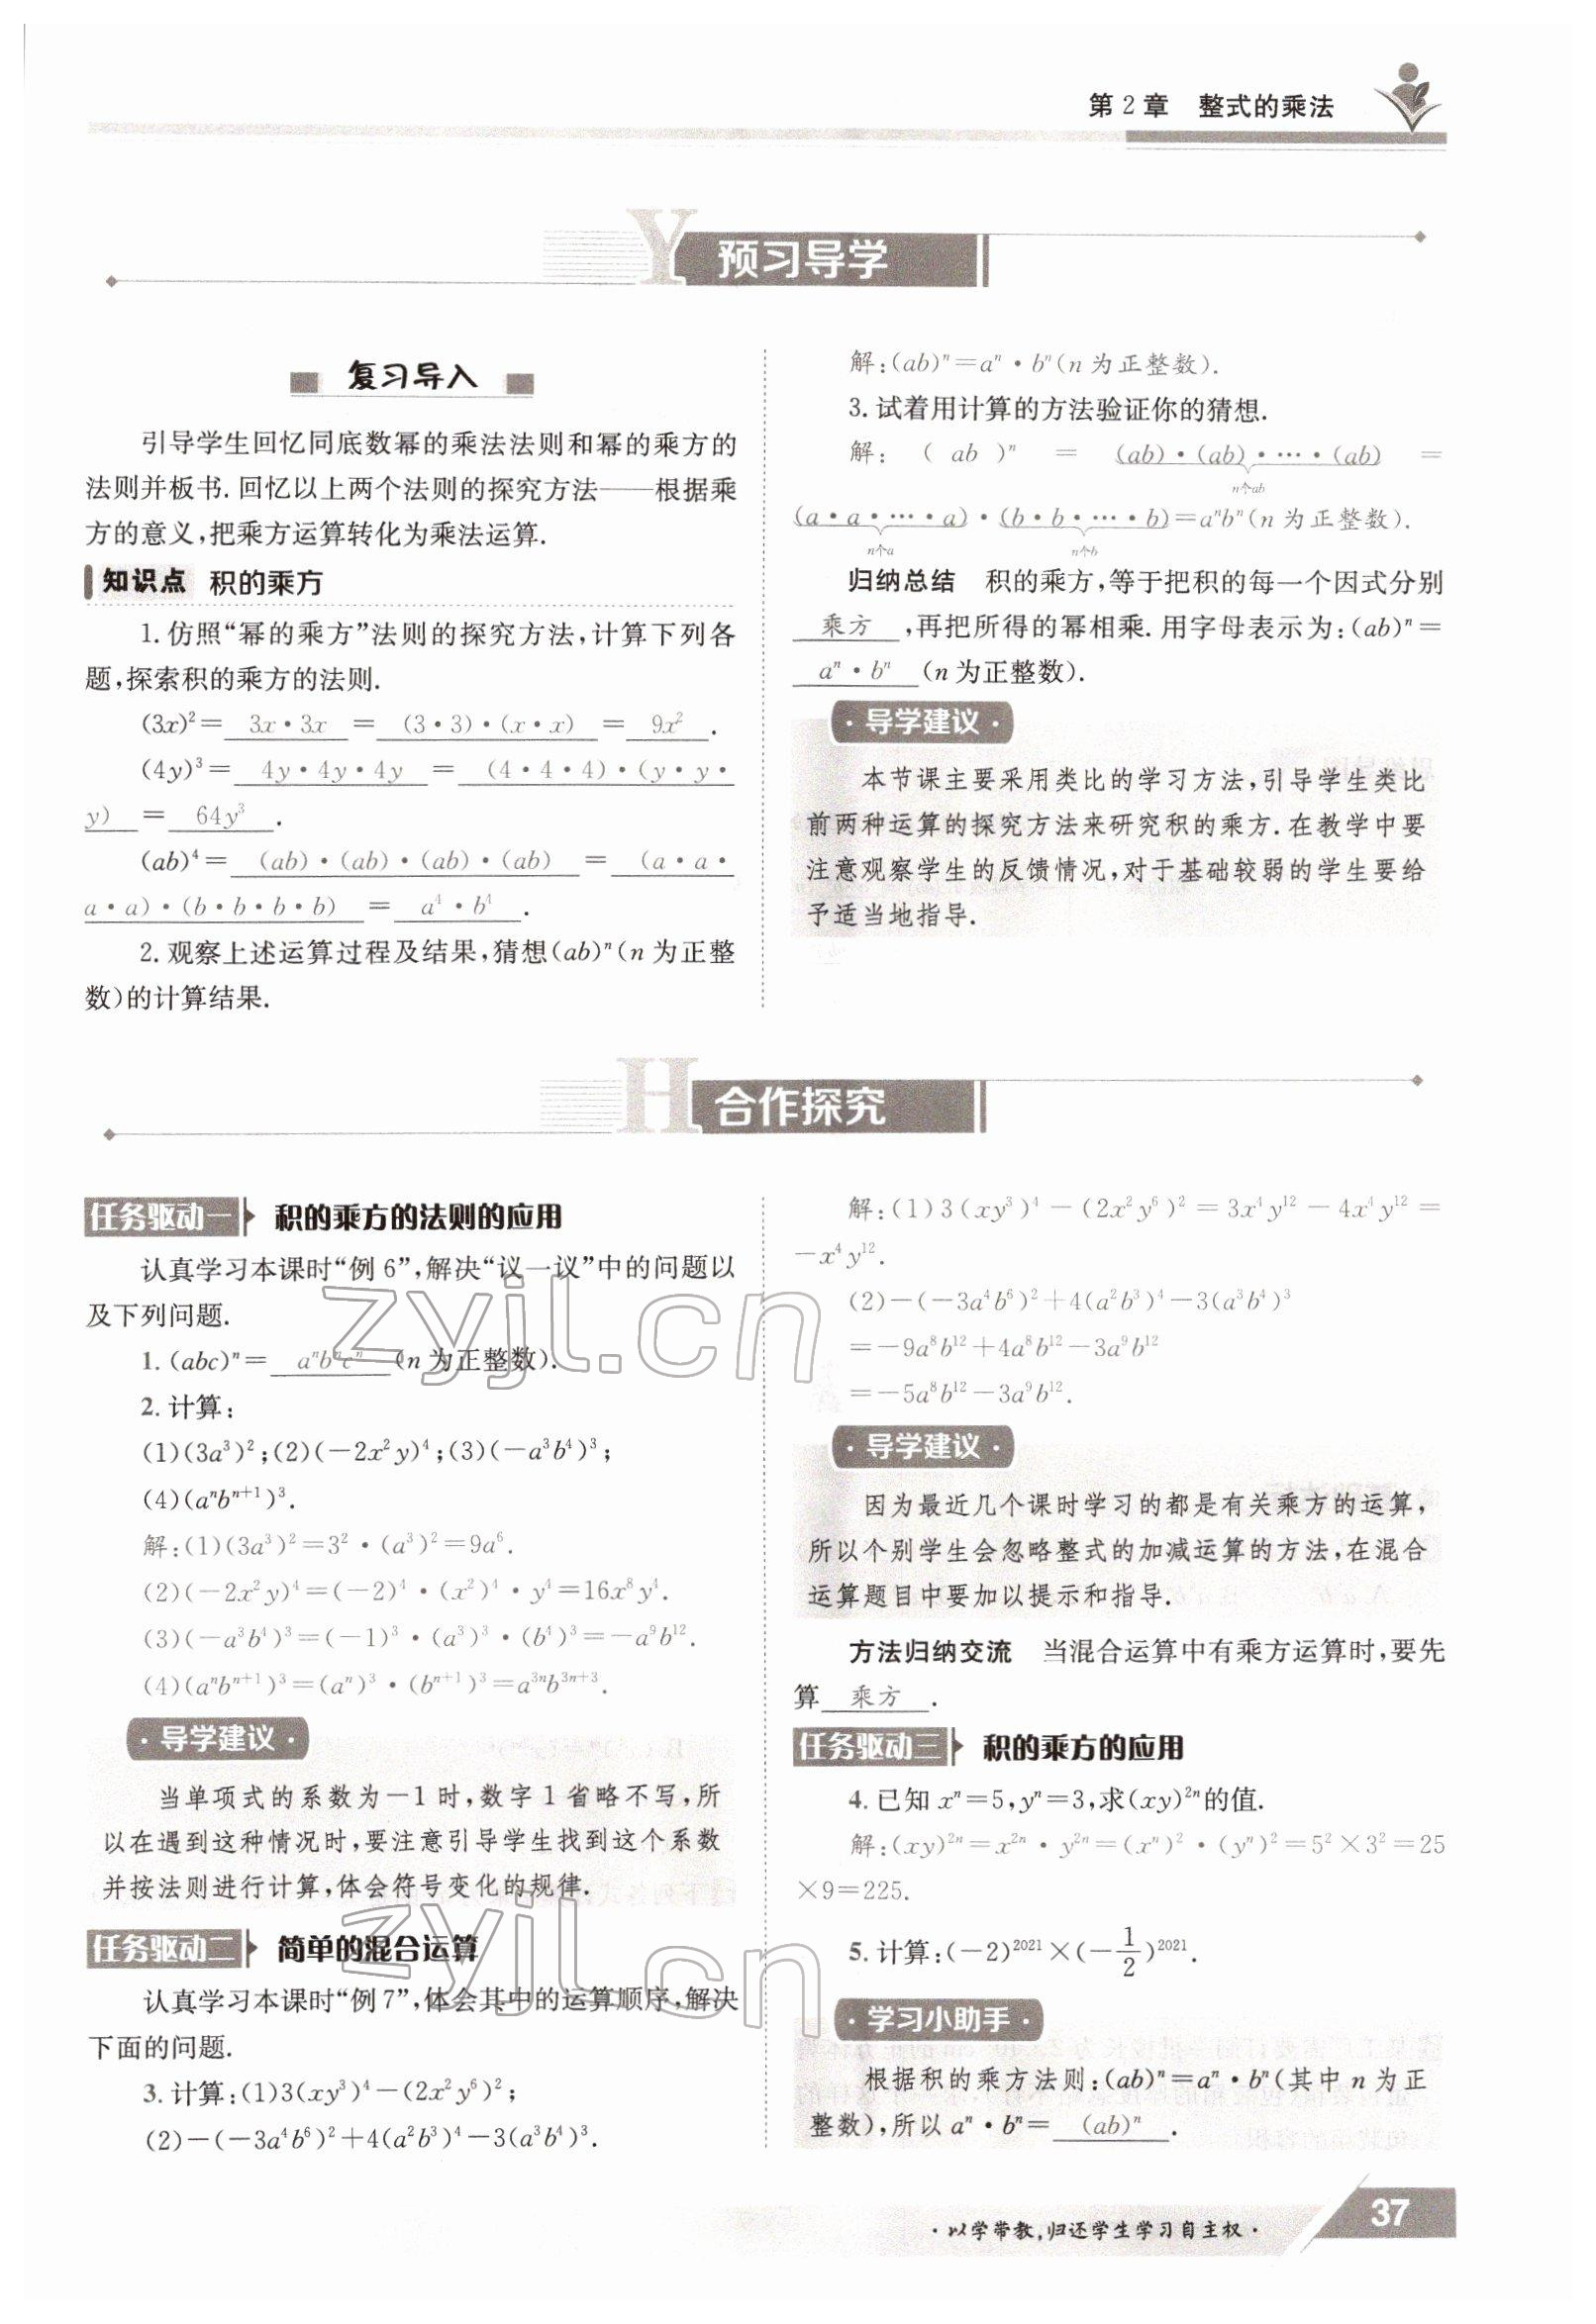 第2章 整式的乘法
预习导学
复习导入
引导学生回忆同底数幂的乘法法则和幂的乘方的
法则并板书.回忆以上两个法则的探究方法——根据乘
方的意义,把乘方运算转化为乘法运算.
知识点 积的乘方
1.仿照“幂的乘方”法则的探究方法,计算下列各
题,探索积的乘方的法则.
(3x)²= 3x·3x = (3·3)·(x·x) = 9x² .
(4y)³= 4y·4y·4y = (4·4·4)·(y·y·
y) = 64y³ .
(ab)⁴= (ab)·(ab)·(ab)·(ab) = (a·a·
a·a)·(b·b·b·b) = a⁴·b⁴ .
2.观察上述运算过程及结果,猜想(ab)ⁿ(n 为正整
数)的计算结果.
解:(ab)ⁿ=aⁿ·bⁿ(n 为正整数).
3.试着用计算的方法验证你的猜想.
解: ( ab )ⁿ = (ab)·(ab)·…·(ab) =
n个ab
(a·a·…·a)·(b·b·…·b)=aⁿbⁿ(n 为正整数).
n个a n个b
归纳总结 积的乘方,等于把积的每一个因式分别
乘方 ,再把所得的幂相乘.用字母表示为:(ab)ⁿ=
aⁿ·bⁿ (n 为正整数).
·导学建议·
本节课主要采用类比的学习方法,引导学生类比
前两种运算的探究方法来研究积的乘方.在教学中要
注意观察学生的反馈情况,对于基础较弱的学生要给
予适当地指导.
合作探究
任务驱动一 积的乘方的法则的应用
认真学习本课时“例6”,解决“议一议”中的问题以
及下列问题.
1.(abc)ⁿ= aⁿbⁿcⁿ (n 为正整数).
2.计算:
(1)(3a³)²;(2)(-2x²y)⁴;(3)(-a³b⁴)³;
(4)(aⁿbⁿ⁺¹)³.
解:(1)(3a³)²=3²·(a³)²=9a⁶.
(2)(-2x²y)⁴=(-2)⁴·(x²)⁴·y⁴=16x⁸y⁴.
(3)(-a³b⁴)³=(-1)³·(a³)³·(b⁴)³=-a⁹b¹².
(4)(aⁿbⁿ⁺¹)³=(aⁿ)³·(bⁿ⁺¹)³=a³ⁿb³ⁿ⁺³.
·导学建议·
当单项式的系数为-1时,数字1省略不写,所
以在遇到这种情况时,要注意引导学生找到这个系数
并按法则进行计算,体会符号变化的规律.
任务驱动二 简单的混合运算
认真学习本课时“例7”,体会其中的运算顺序,解决
下面的问题.
3.计算:(1)3(xy³)⁴-(2x²y⁶)²;
(2)-(-3a⁴b⁶)²+4(a²b³)⁴-3(a³b⁴)³.
解:(1)3(xy³)⁴-(2x²y⁶)²=3x⁴y¹²-4x⁴y¹²=
-x⁴y¹².
(2)-(-3a⁴b⁶)²+4(a²b³)⁴-3(a³b⁴)³
=-9a⁸b¹²+4a⁸b¹²-3a⁹b¹²
=-5a⁸b¹²-3a⁹b¹².
·导学建议·
因为最近几个课时学习的都是有关乘方的运算,
所以个别学生会忽略整式的加减运算的方法,在混合
运算题目中要加以提示和指导.
方法归纳交流 当混合运算中有乘方运算时,要先
算 乘方 .
任务驱动三 积的乘方的应用
4.已知 xⁿ=5,yⁿ=3,求(xy)²ⁿ的值.
解:(xy)²ⁿ=x²ⁿ·y²ⁿ=(xⁿ)²·(yⁿ)²=5²×3²=25
×9=225.
5.计算:(-2)²⁰²¹×(-1/2)²⁰²¹.
·学习小助手·
根据积的乘方法则:(ab)ⁿ=aⁿ·bⁿ(其中 n 为正
整数),所以 aⁿ·bⁿ= (ab)ⁿ .
·以学带教,归还学生学习自主权·
37
zyjl.cn
zyjl.cn